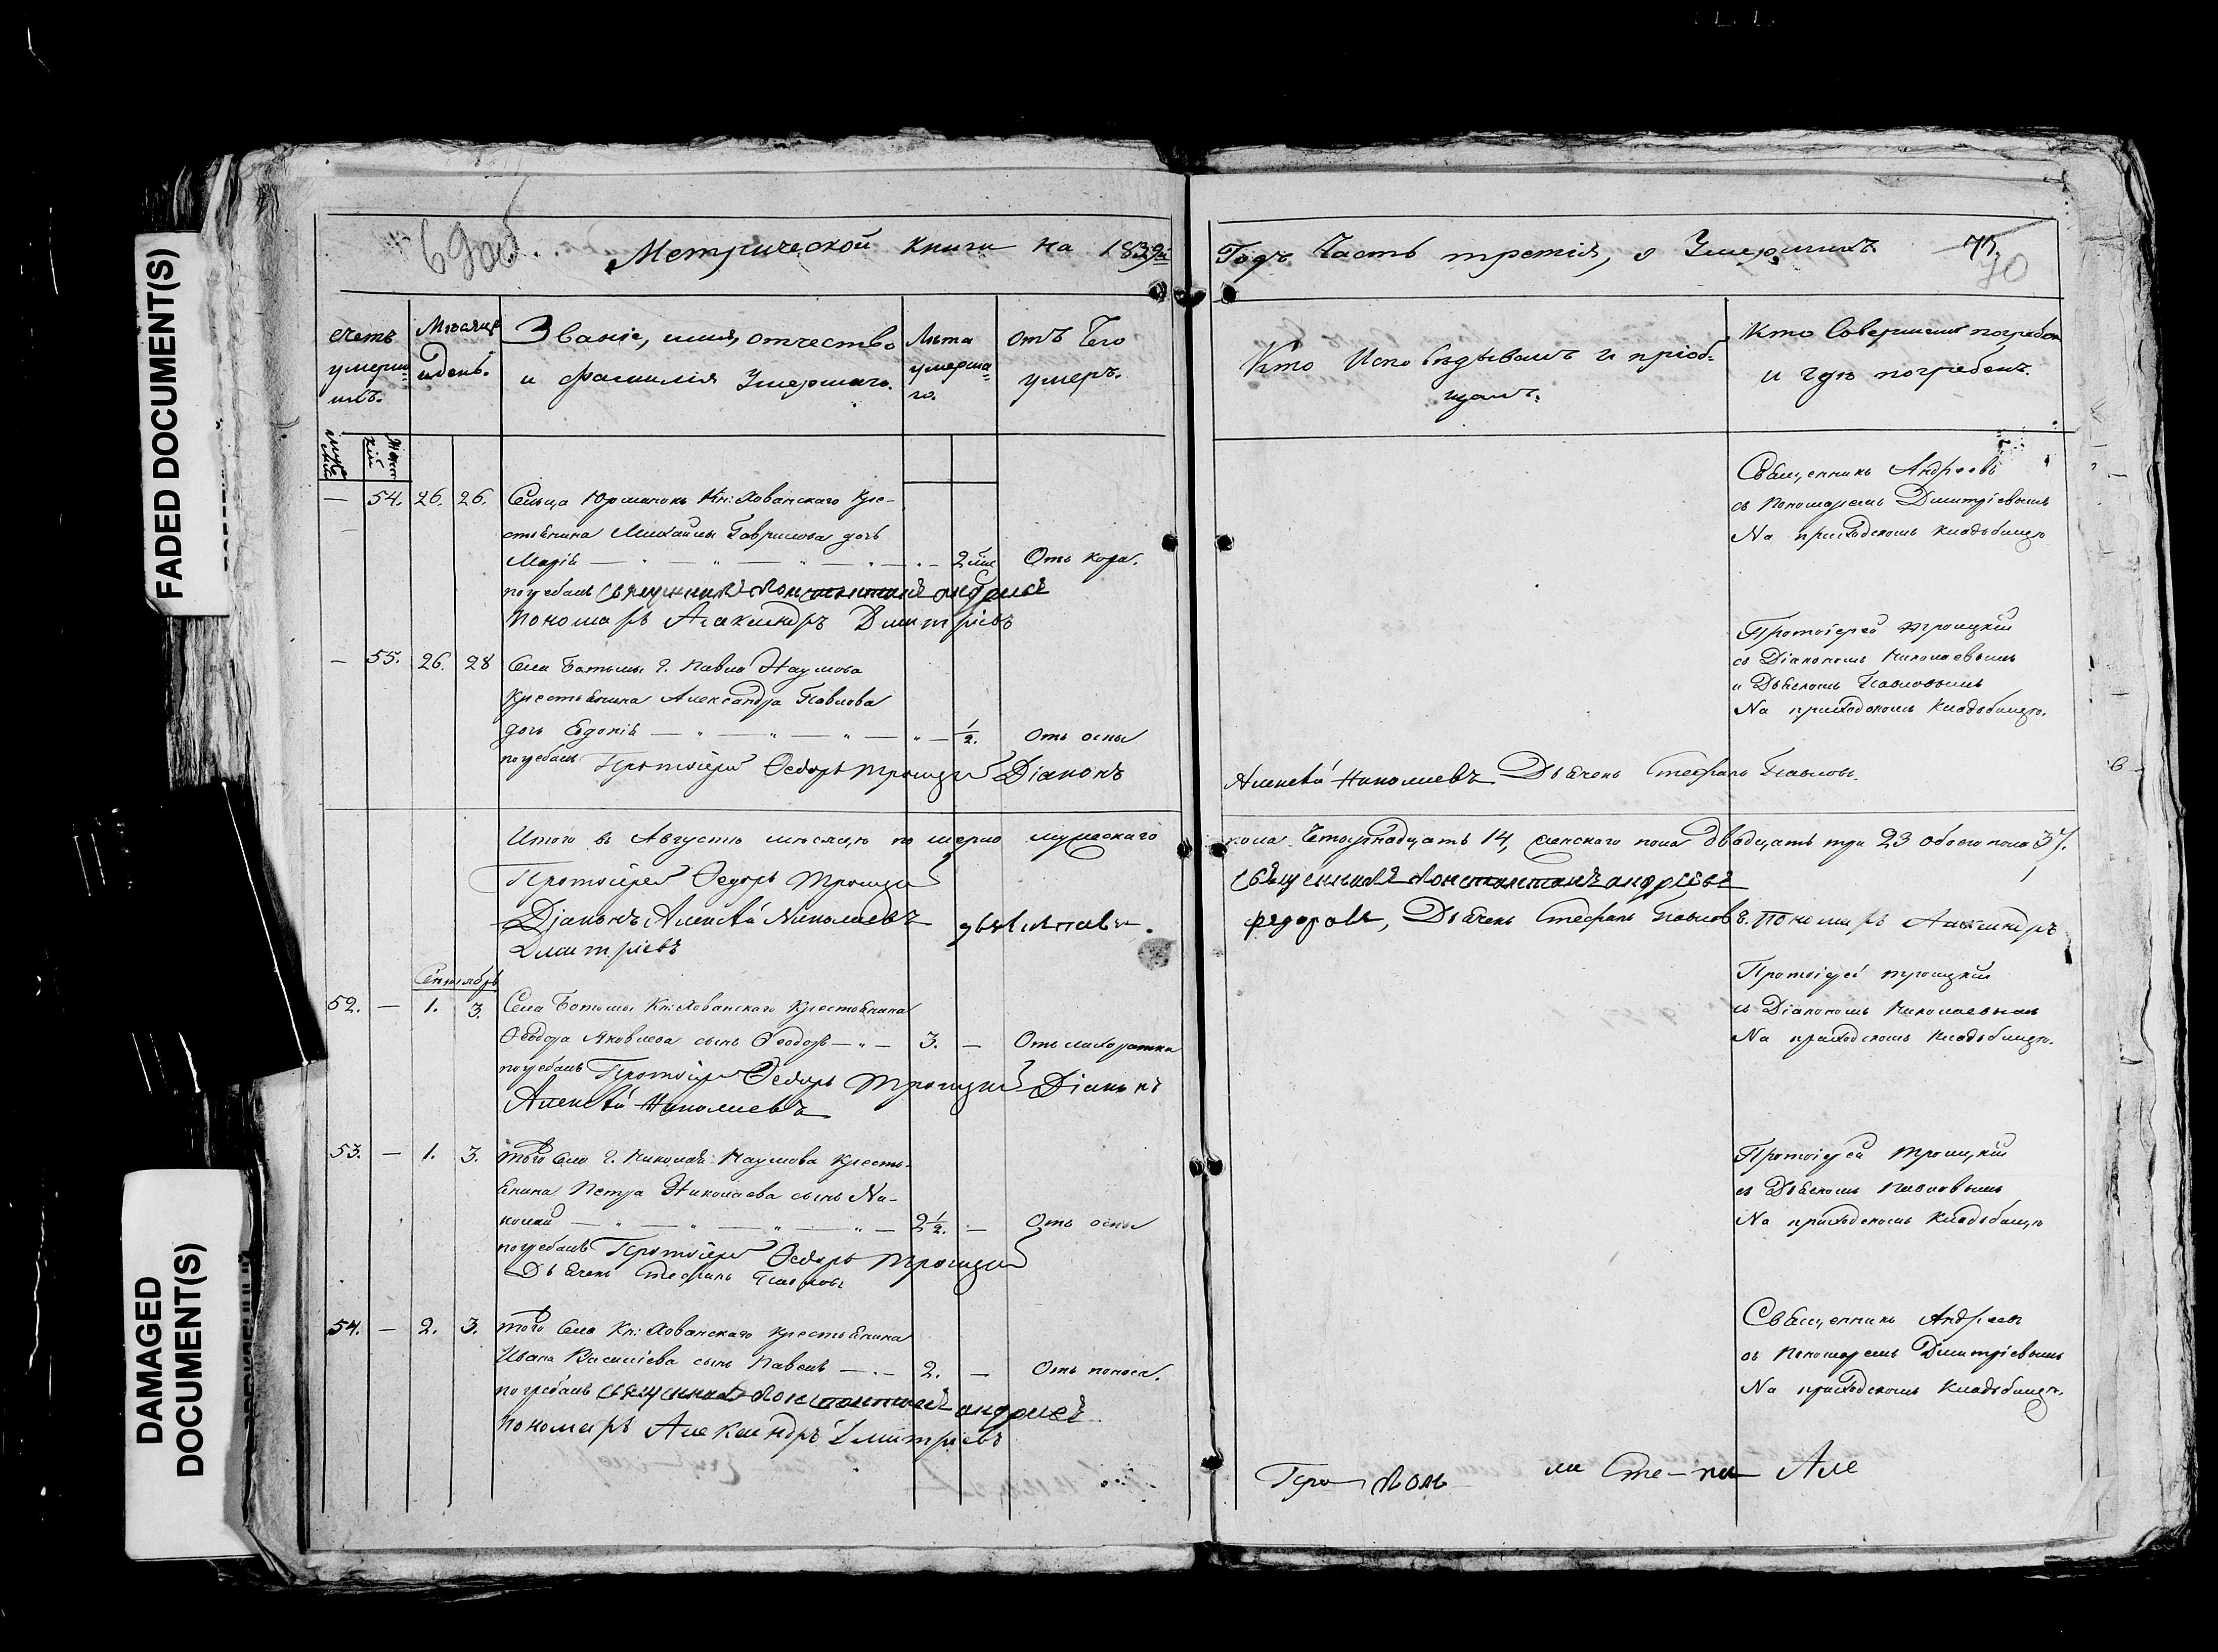 FADED DOCUMENT(S)
DAMAGED DOCUMENT(S)
69об.
Метрической книги на 1839й
счетъ умерш=ихъ.
Мѣсяцъ и день.
Званіе, имя, отчество
и фамилія Умершаго.
Лѣта умерша=го.
отъ Чего умеръ.
муже скій
Женс кій
— 54. 26. 26. Сельца Юрманокъ Кн: Хованскаго Кре-
стьянина Михаилы Гаврилова дочь
Марія — " — " — " — 2 Отъ кори.
погребалъ Священникъ Констинтинъ андриевъ
пономарь Алаксандръ Дмитріевъ
— 55. 26. 28 Села Батьмы Г. Павла Наумова
крестьянина Александра Павлова
дочь Евдокія — " — " — " — " — 1/2. Отъ оспы
погребалъ Протоіерей Ѳедоръ Троицкій Діаконъ
Итого въ Августѣ мѣсяцѣ по мерло мужескаго
Протоіерей Ѳедоръ Троицкій
Діаконъ Алексѣй Николаевъ
Дмитріевъ
Сентябрь
52. — 1. 3. Села Батьмы Кн: Хованскаго Крестьянина
Ѳеодора Яковлева сынъ Ѳеодоръ — " — 3. — Отъ лихоратки
погребалъ Протоіерей Ѳедоръ Троицкій Діаконъ
Алексѣй Николаевъ
53. — 1. 3. того Села Г. Николая Наумова Кресть-
янина Петра Николаева сынъ Ни-
колай — " — " — " — " — 2 1/2. — Отъ оспы
погребалъ Протоіерей Ѳедоръ Троицкій
Дьячекъ Стефанъ Павловъ
54. — 2. 3. того Села Кн: Хованскаго крестьянина
Ивана Василіева сынъ Павелъ — " — 2. — Отъ поноса.
погребалъ Священникъ Констинтинъ андриевъ
пономарь Александръ Дмитріевъ
Годъ Часть третія, о Умершихъ
70
Кто Исповѣдывалъ и пріоб=
щалъ.
Кто Совершалъ погребен
и гдѣ погребенъ.
Священникъ Андреевъ
съ Пономаремъ Дмитріевымъ
На приходскомъ кладбищѣ
Протоіерей Троицкій
съ Діакономъ Николаевымъ
и Дьячкомъ Павловымъ
На приходскомъ кладбищѣ.
Алексѣй Николаевъ Дьячекъ Стефанъ Павловъ.
пола Четырнадцать 14, женскаго пола двадцать три 23 обоего пола 37.
Священникъ Констинтинъ андріевъ
федоровъ, Дьячекъ Стефанъ Павловъ. Пономарь Алаксандръ
Протоіерей Троицкій
съ Діакономъ Николаевымъ
На приходскомъ кладбищѣ.
Протоіерей Троицкій
съ Дьячкомъ Павловымъ
На приходскомъ кладбищѣ
Священникъ Андреевъ
съ Пономаремъ Дмитріевымъ
На приходскомъ кладбищѣ.
Про Кон ли Сте-па Але